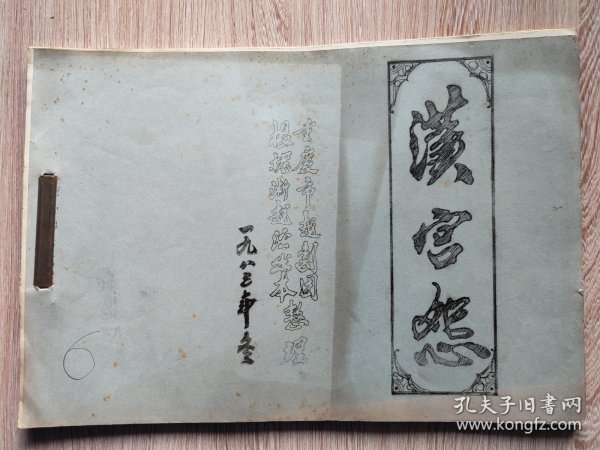 漢宫怨
重庆市越剧团
根据浙越演出本整理
一九八三年冬
6
孔夫子旧书网
www.kongfz.com